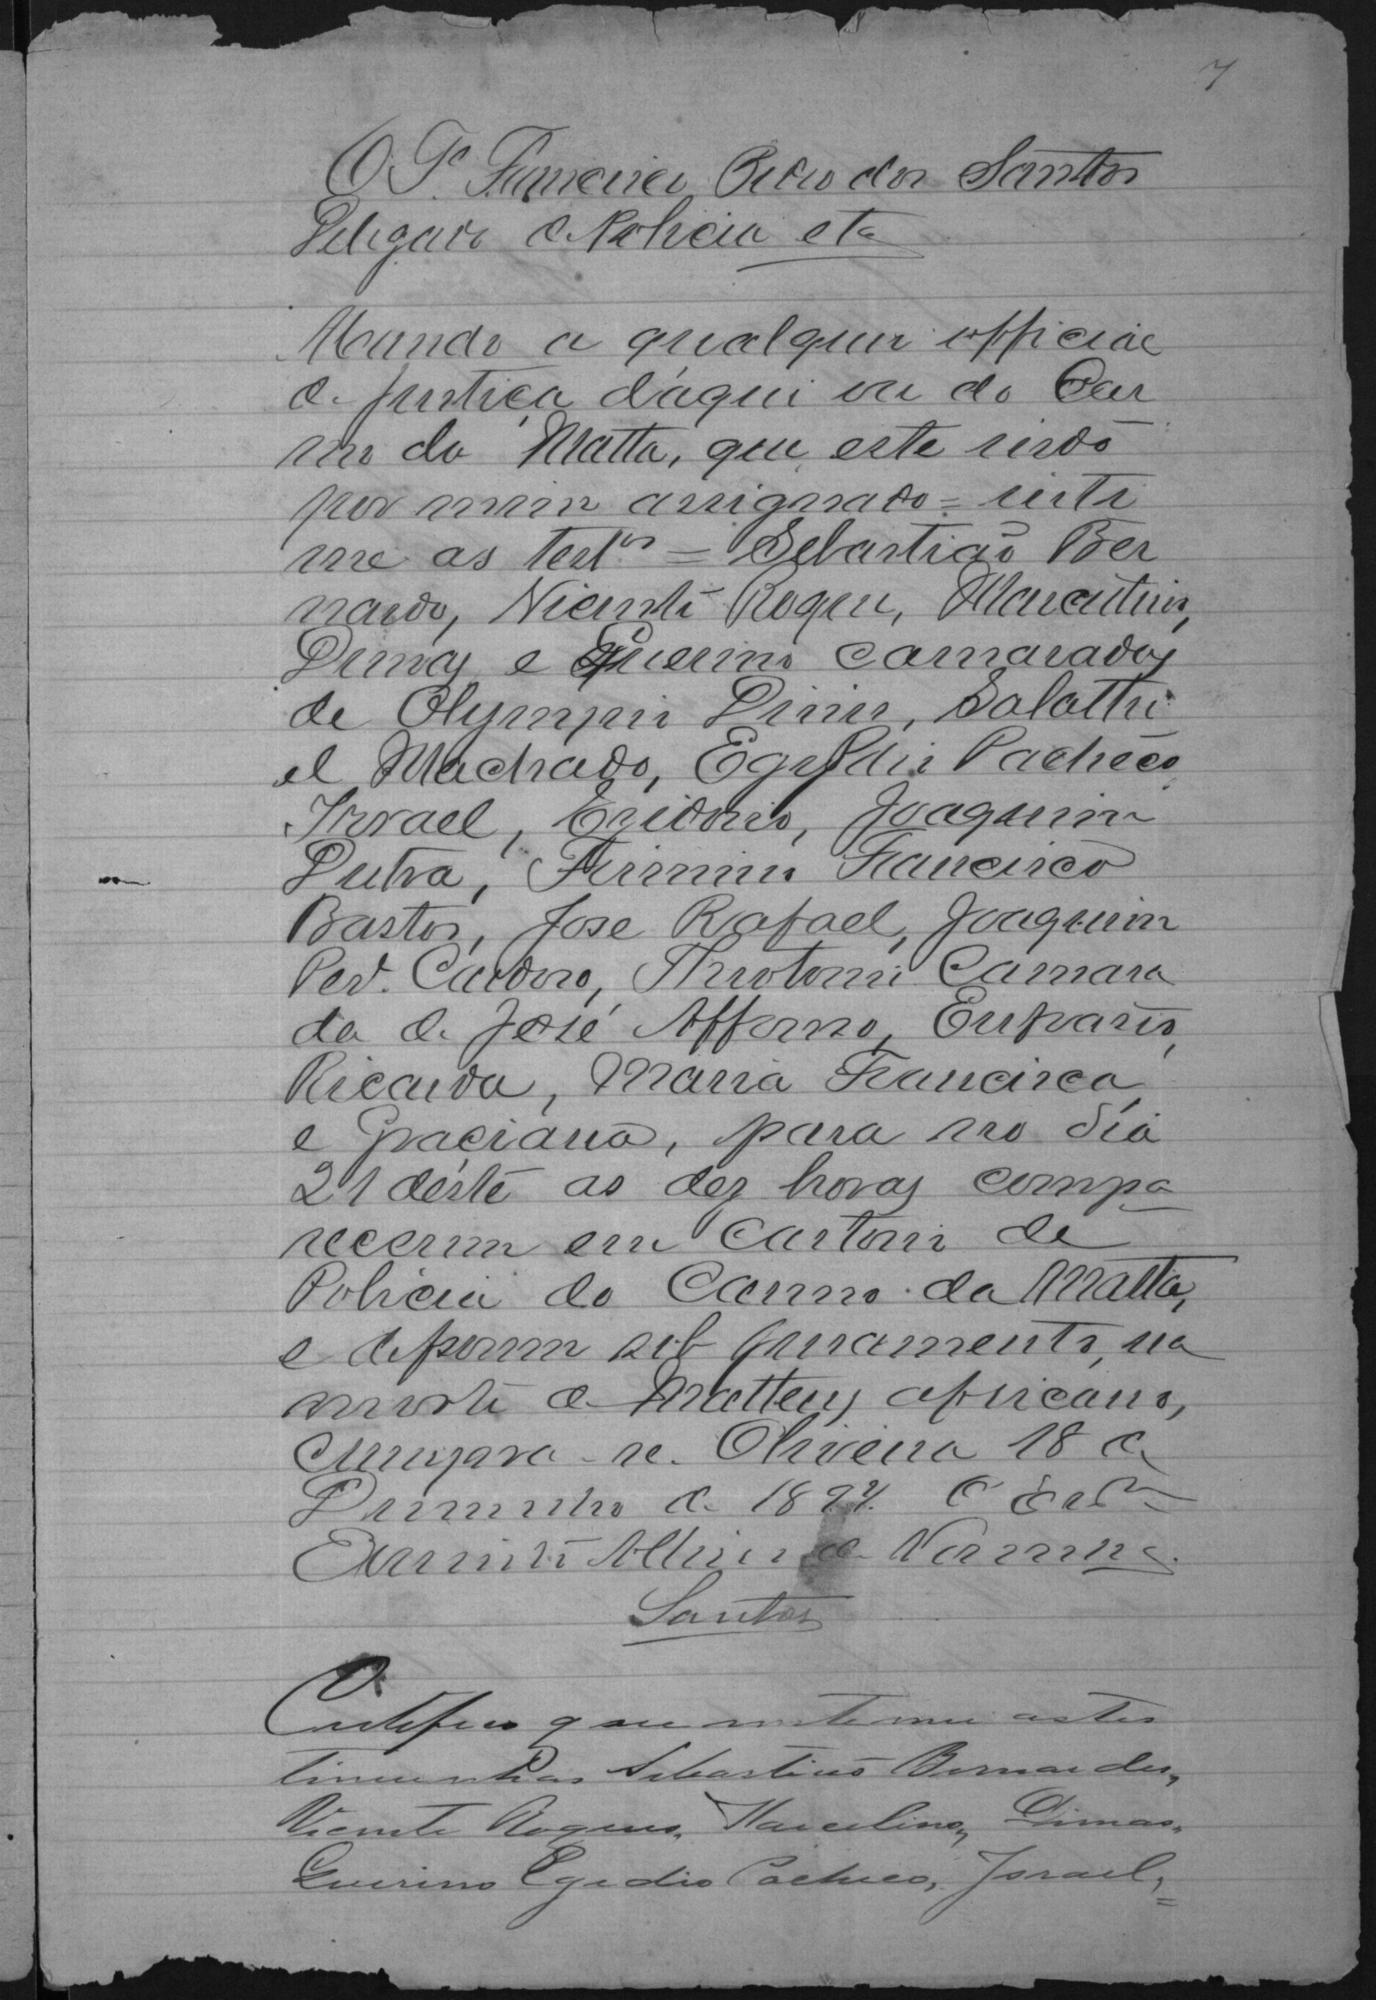 7
O Francisco Pedro dos Santos
Delegado de Policia etc
Mando a qualquer official
de justiça d'aqui ou do Car
mo da Matta, que este indo
por mim assignado = inti
me as test.as = Sebastião Ber
nardo, Vicente Roque, Marcelino,
Dimas e Querino camaradas
de Olympio Diniz, Salathi
el Machado, Egydio Pacheco
Israel, Izidorio, Joaquim
Dutra, Firmino Francisco
Bastos, Jose Rafael, Joaquim
Per.ª Cardoso, Theotonio Camara
da de José Affonso,
Ricarda, Maria Francisca
e Graciana, para no dia
21 déste as dez horas compa
recerem em cartorio de
Policia do Carmo da Matta,
e deporem sob juramento, na
morte de Matteus africano,
cumpra-se. Oliveira 18 de
de 189 O Escr.m
de
Santos
Certifico que as tes
timunhas Sebastião Bernardes,
Vicente Roque, Marcelino, Dimas,
Guerino Egidio Pacheco, Israel, =